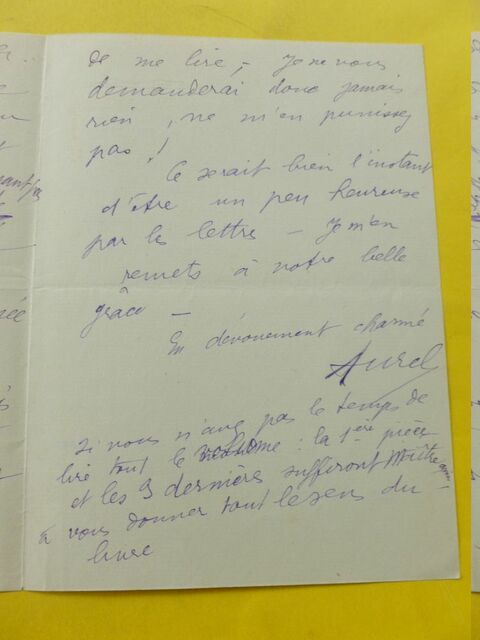 de me lire, - Je ne vous
demanderai donc jamais
rien, ne m'en punissez
pas!
Ce serait bien l'instant
d'être un peu heureuse
par les lettres - Je m'en
remets à votre belle
grâce -
En dévouement charmé
Aurel
Si vous n'avez pas le temps de
lire tout le volume : la 1ère pièce
et les 3 dernières suffiront
à vous donner tout le sens du
livre